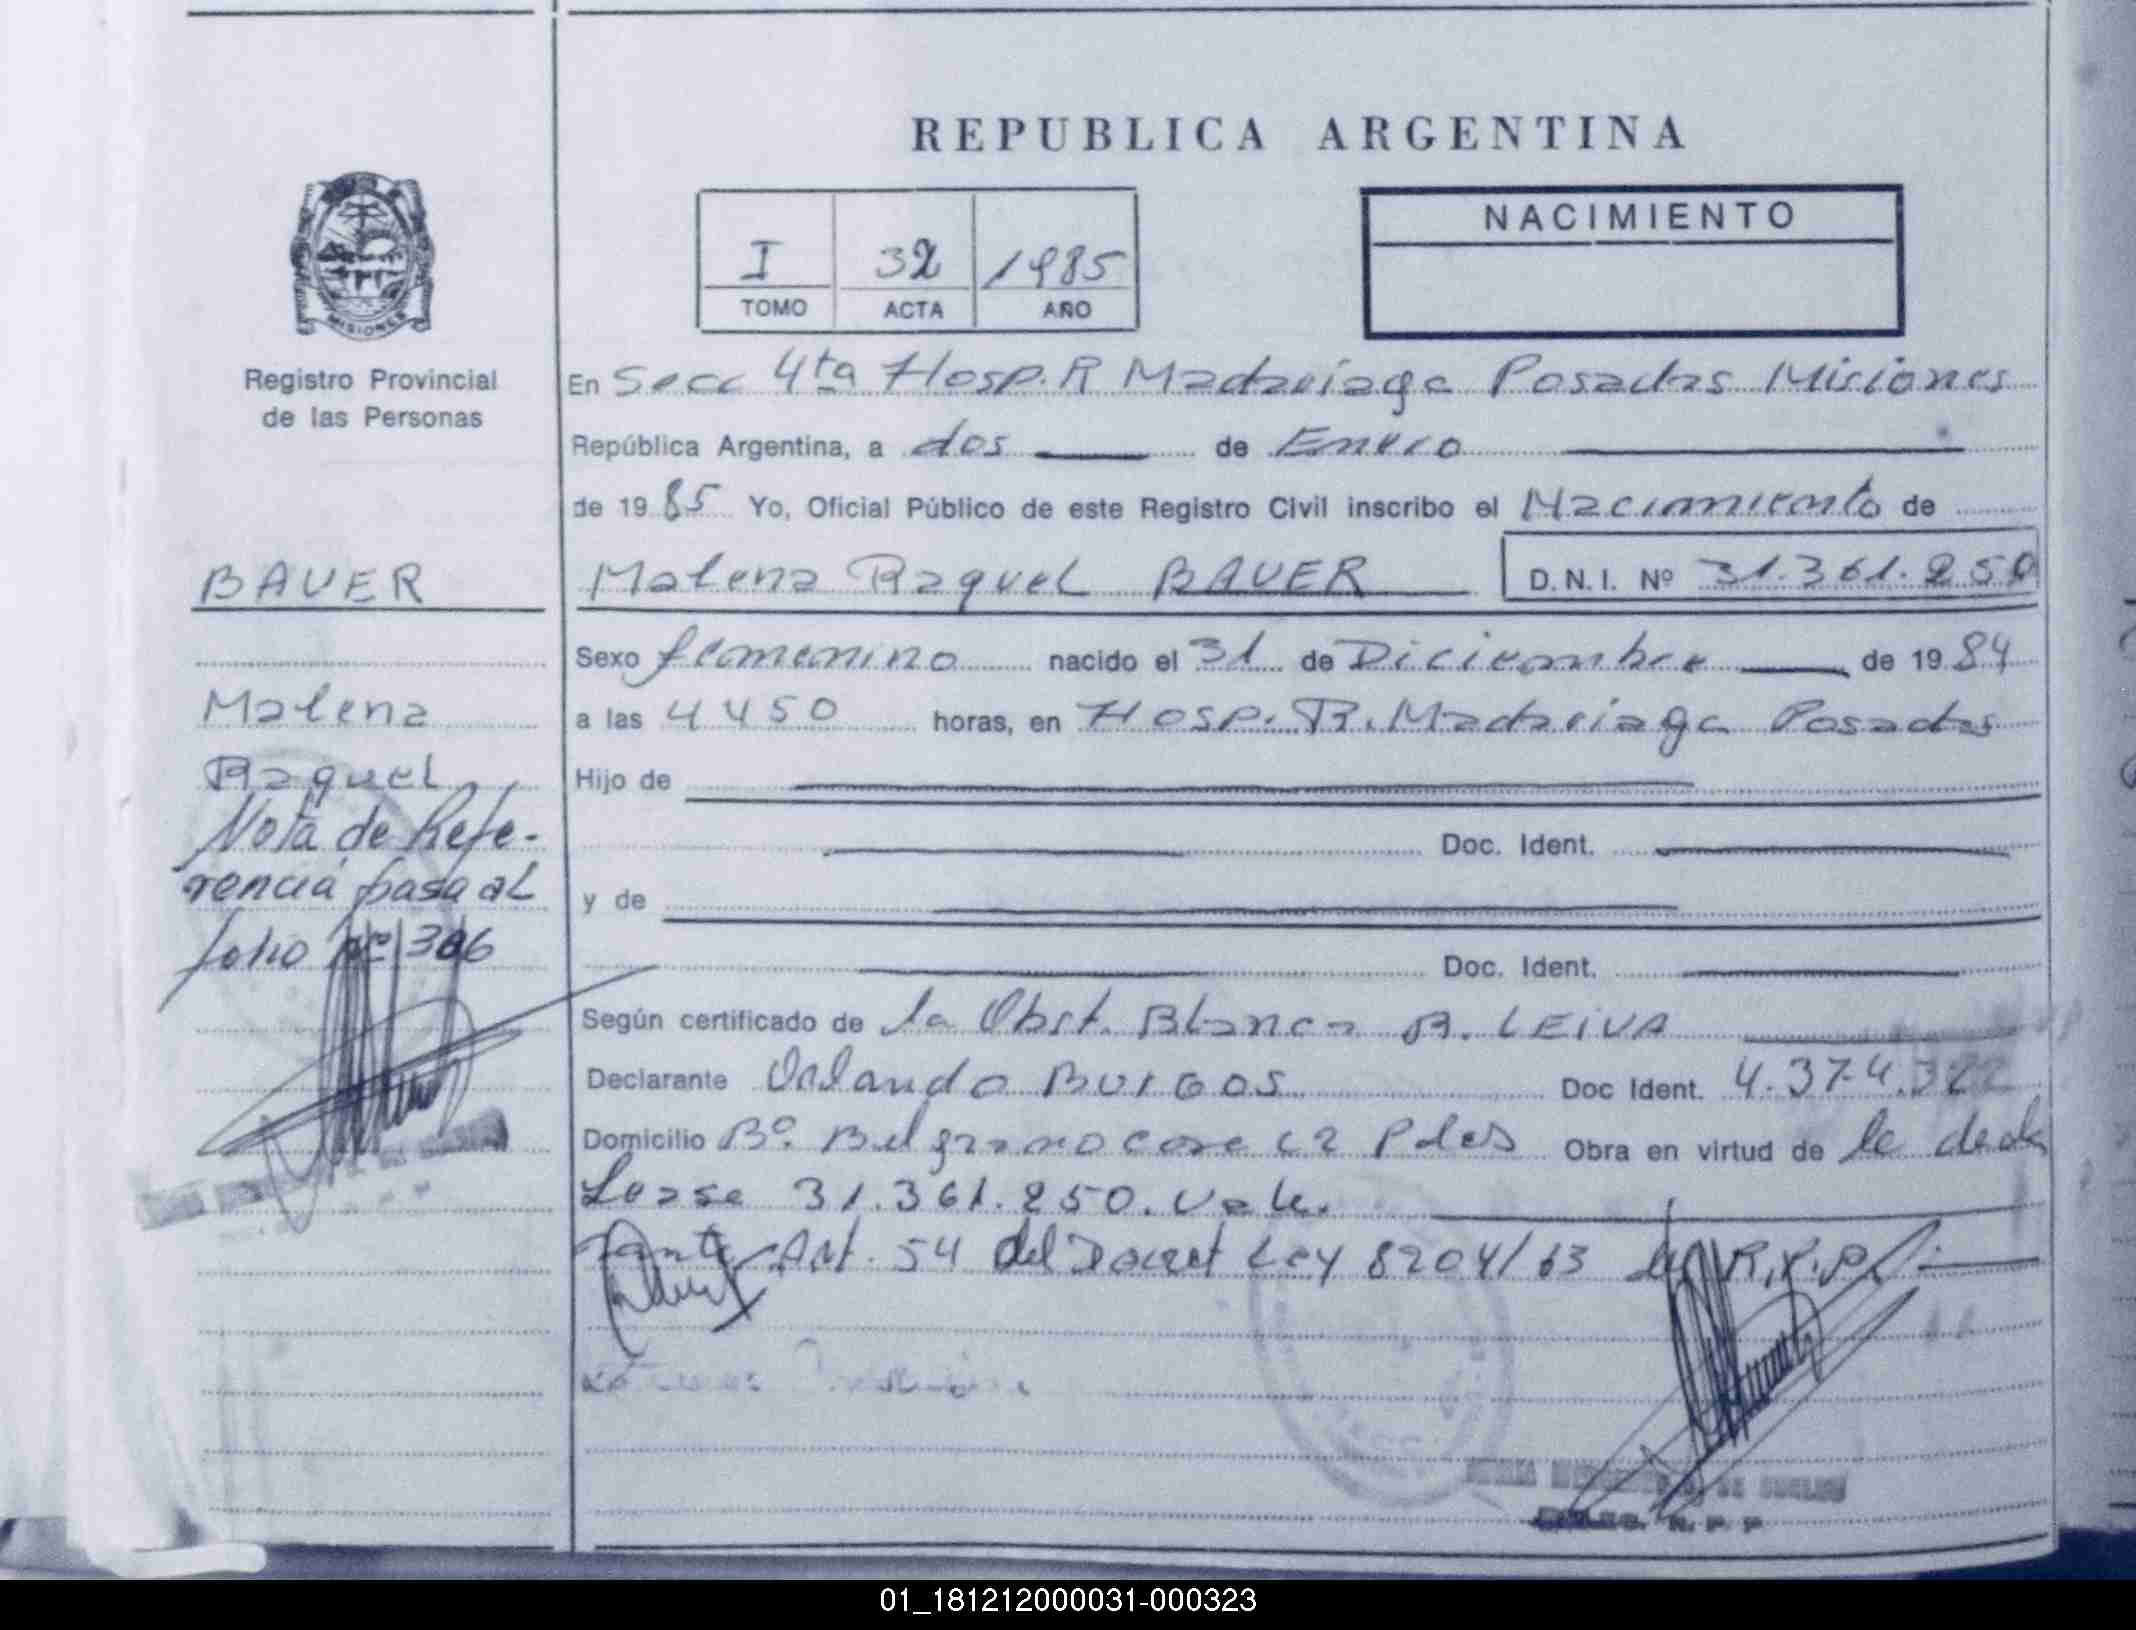 REPUBLICA ARGENTINA
I 32 1985
TOMO ACTA AÑO
NACIMIENTO
MISIONES
Registro Provincial
de las Personas
En Secc 4ta Hosp. R Madariaga Posadas Misiones
República Argentina, a dos de Enero
de 1985 Yo, Oficial Público de este Registro Civil inscribo el Nacimiento de
BAUER
Malena Raquel BAUER D.N.I. Nº 31.361.250
Sexo femenino nacido el 31 de Diciembre de 1984
Malena
a las 4 450 horas, en Hosp. R. Madariaga Posadas
Raquel
Hijo de
Nota de Refe-
rencia pasa al
folio nº 306
Doc. Ident.
y de
Doc. Ident.
Según certificado de la Obst. Blanca B. LEIVA
Declarante Orlando BURGOS Doc Ident. 4.374.322
Domicilio Bº. Belgrano case 62 Pdas Obra en virtud de la decla
Lease 31.361.250. Vale.
rante Art. 54 del Decret Ley 8204/63 R.P.P.
R. P. P
01_181212000031-000323